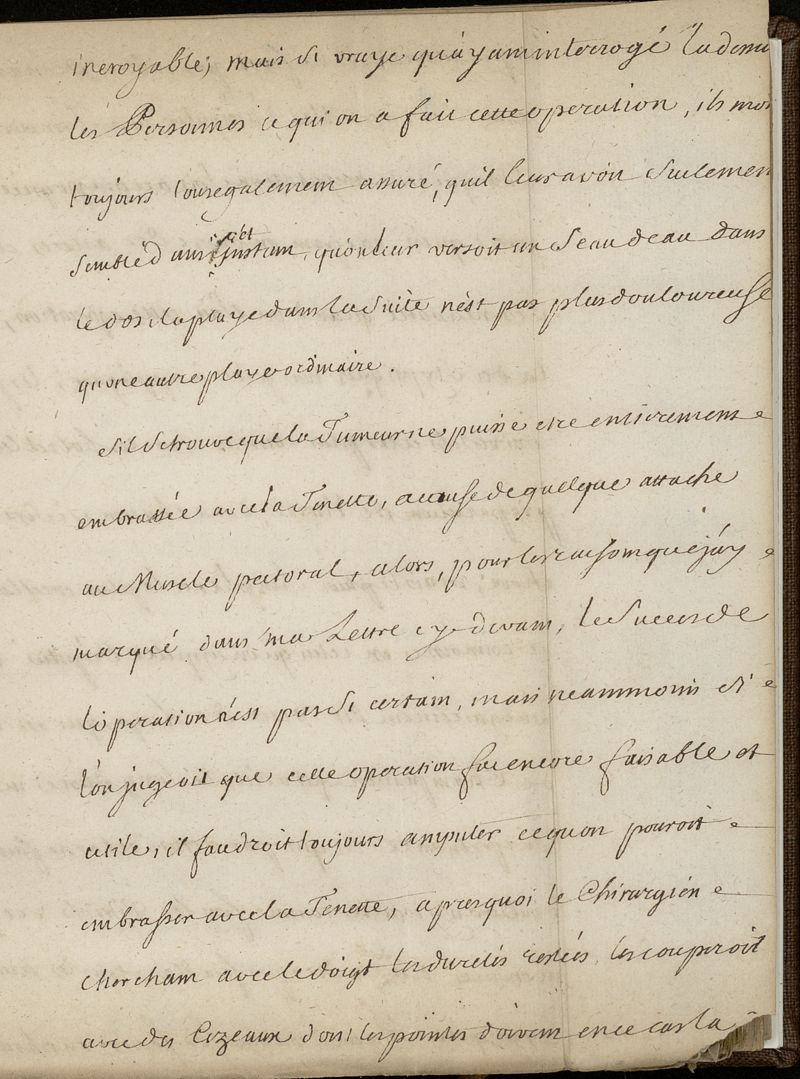 incroyable; mais si vraye qu'ayant interrogé
les Personnes a qui on a fait cette operation, ils m'on
toujours tous egalement assuré, qu'il leur avoit seulement
semblé d'ans cet instant, qu'on leur versoit un seau d'eau dans
le dos; la playe dans la suite n'est pas plus douloureuse
qu'une autre playe ordinaire.
s'il se trouve que la Tumeur ne puisse etre entierement
embrassée avec la Tenette, a cause de quelque attache
au Muscle pectoral, alors, pour les raisons que j'ay
marqué dans ma Lettre cy devant, le succes de
l'operation n'est pas si certain, mais neammoins si
l'on jugeoit que cette operation fut encore faisable et
utile, il faudroit toujours amputer ce qu'on pouroit
embrasser avec la Tenette, apres quoi le Chirurgien
cherchant avec le doigt les duretés restées, les couperoit
avec des Cizeaux dont les pointes doivent en ce cas la